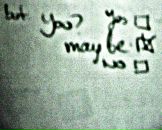 but you? yes
maybe
no